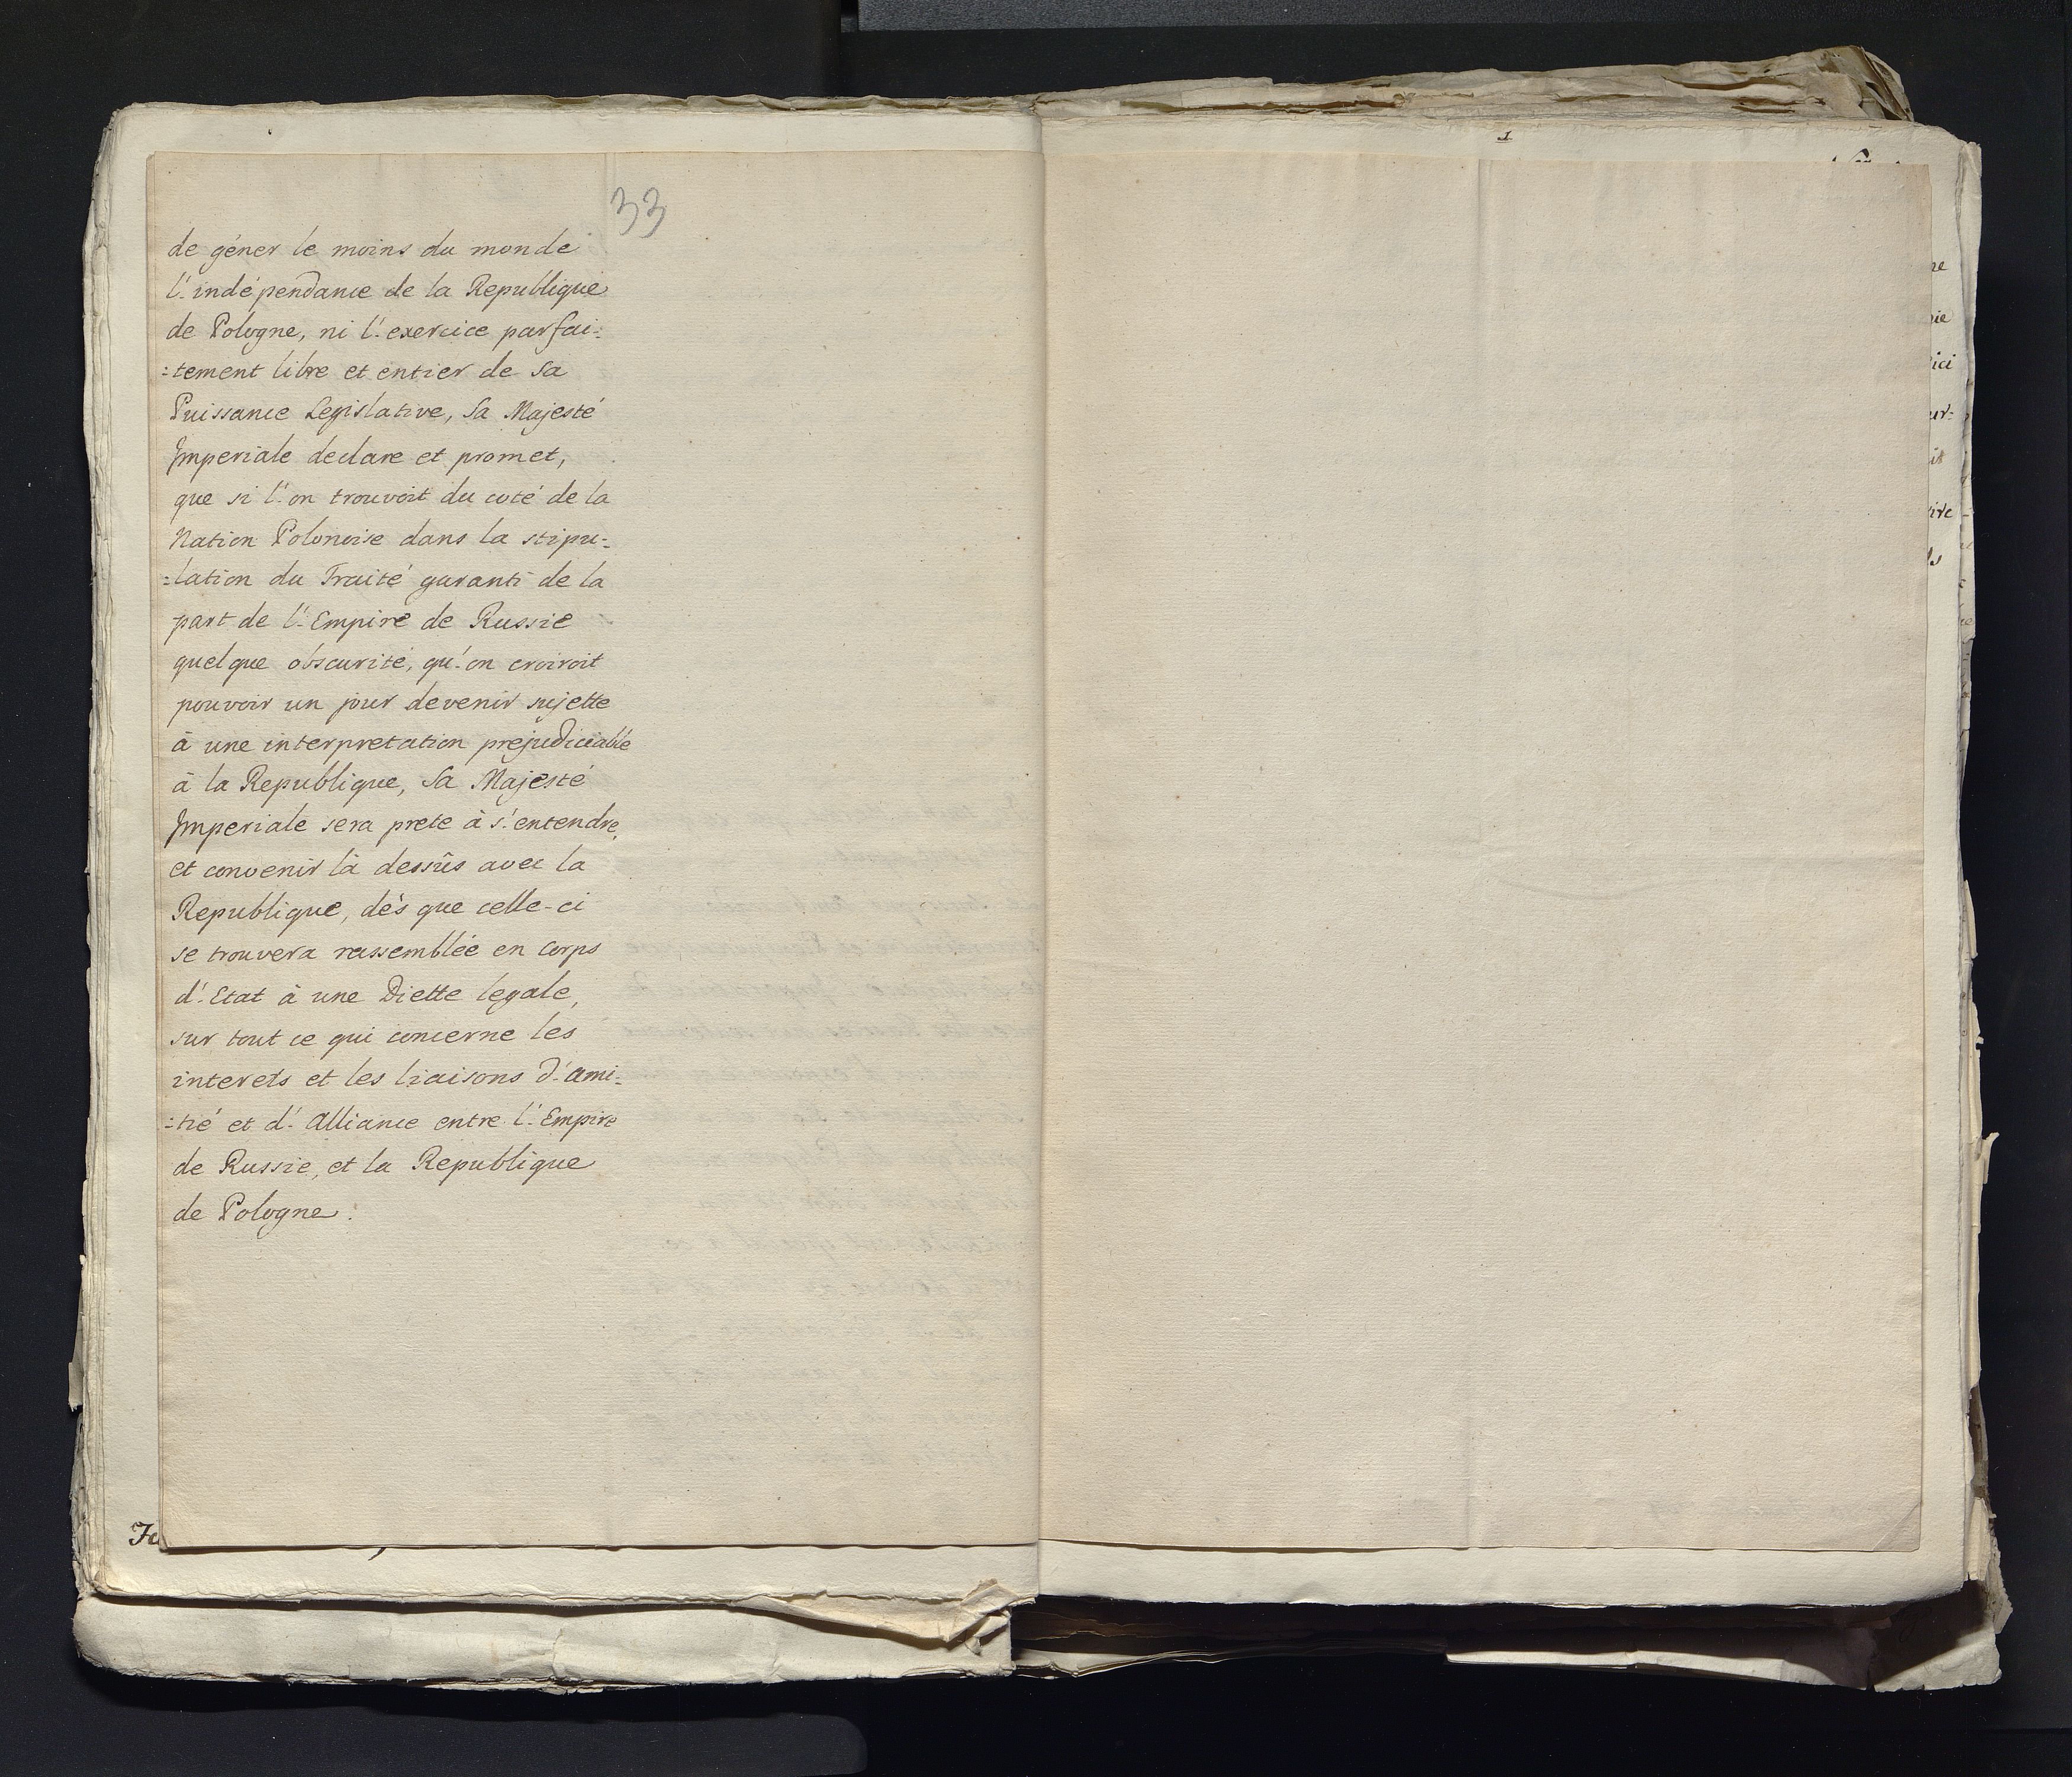 33
de géner le moins du monde
l'indépendance de la Republique
de Pologne, ni l'exercice parfai=
=tement libre et entier de sa
Puissance Legislative, Sa Majesté
Imperiale declare et promet,
que si l'on trouvoit du coté de la
Nation Polonoise dans la stipu=
=lation du Traité garanti de la
part de l'Empire de Russie
quelque obscurité, qu'on croiroit
pouvoir un jour devenir sujette
à une interpretation prejudiciable
à la Republique, Sa Majesté
Imperiale sera prete à s'entendre,
et convenir là dessûs avec la
Republique, dès que celle-ci
se trouvera rassemblée en corps
d'Etat à une Diette legale,
sur tout ce qui concerne les
interets et les liaisons d'ami=
=tié et d'Alliance entre l'Empire
de Russie, et la Republique
de Pologne.
1
ne
nie
ici
ur=